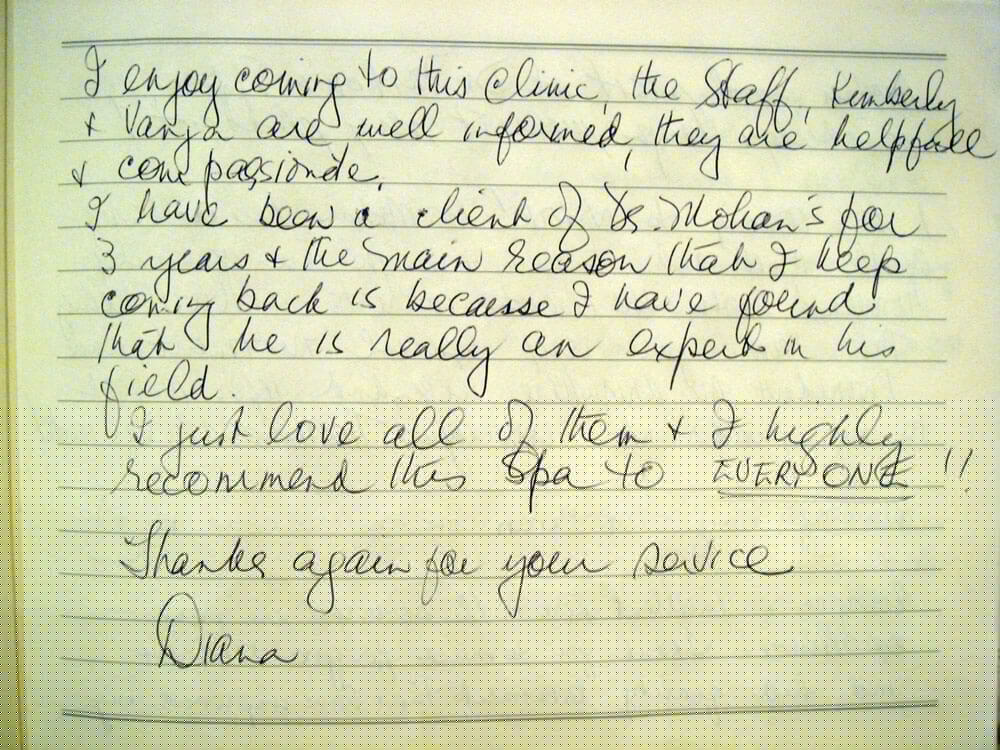 I enjoy coming to this Clinic, the Staff, Kimberly
+ Vanja are well informed, they are helpfull
+ compassionate.
I have been a client of Dr. Mohan's for
3 years + the main reason that I keep
coming back is because I have found
that he is really an expert in his
field.
I just love all of them + I highly
recommend this Spa to EVERYONE !!
Thanks again for your service
Diana